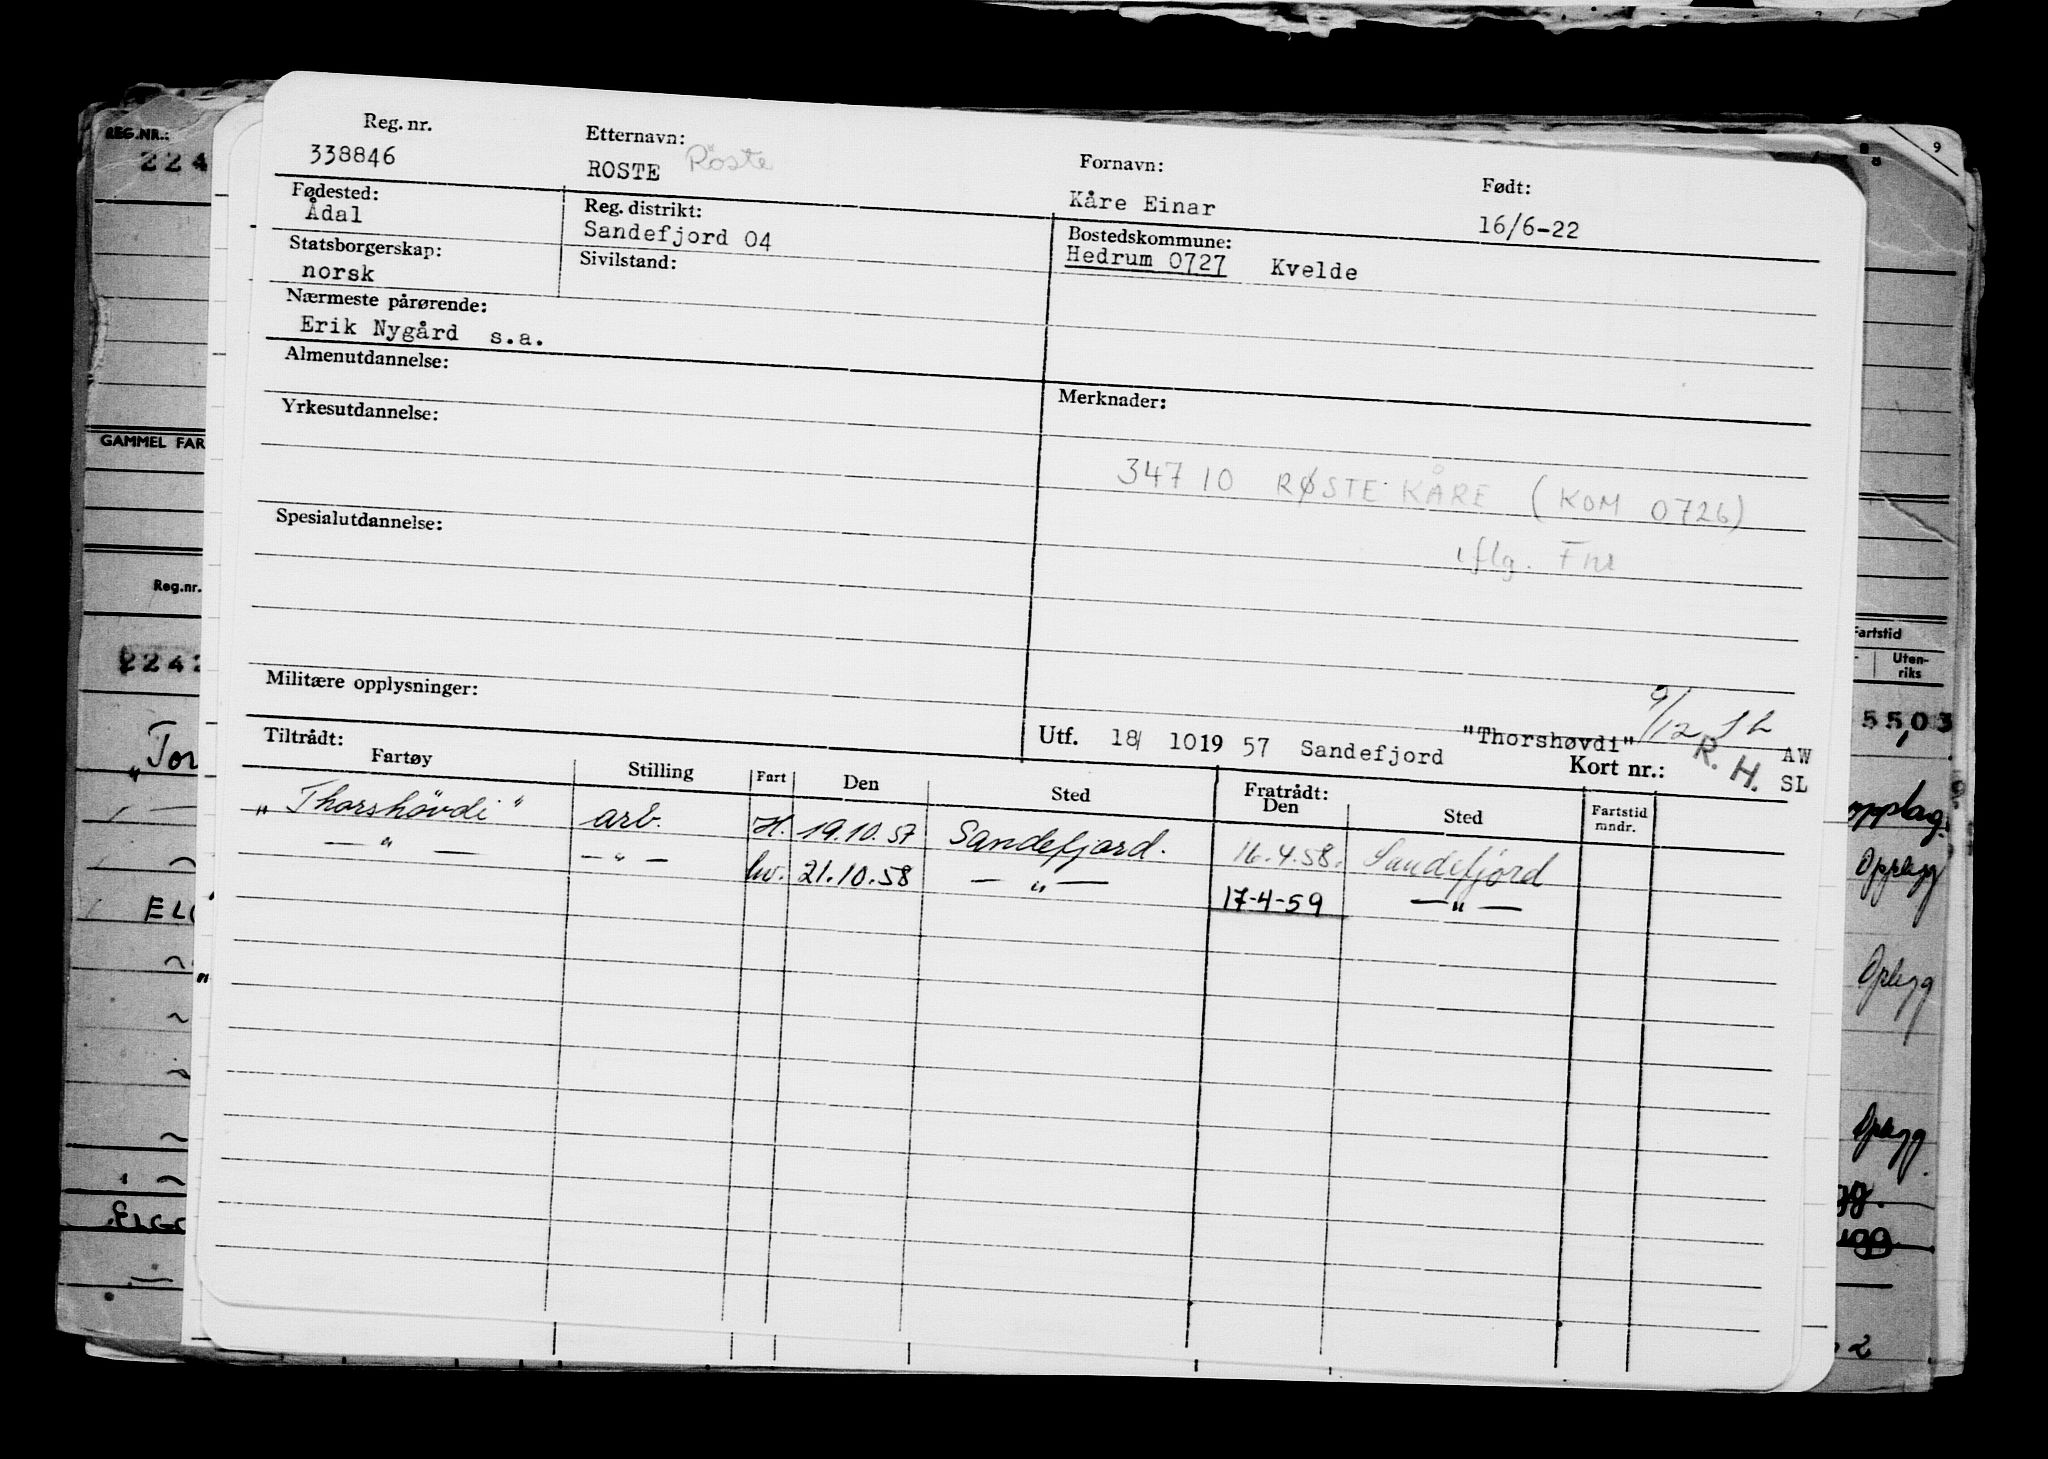 REG.NR.:
224
9
Reg. nr.
338846
Etternavn:
ROSTE Röste
Fornavn:
Kåre Einar
Født:
16/6-22
Fødested:
Ådal
Reg. distrikt:
Sandefjord 04
Bostedskommune:
Hedrum 0727 Kvelde
Statsborgerskap:
norsk
Sivilstand:
Nærmeste pårørende:
Erik Nygård s.a.
Almenutdannelse:
Merknader:
Yrkesutdannelse:
34710 RØSTE KÅRE (KOM 0726)
iflg. Fnr
Spesialutdannelse:
Militære opplysninger:
Utf. 18/ 1019 57 Sandefjord "Thorshøvdi" 9/12 AW
R. H. SL
Kort nr.:
Tiltrådt:
Fartøy Stilling Fart Den Sted Fratrådt: Den Sted Fartstid mndr.
"Thorshövdi" arb. H. 19.10.57 Sandefjord. 16.4.58. Sandefjord
— " — — " — hv. 21.10.58 — " — 17-4-59 — " —
GAMMEL FAR
Reg.nr.
2242
Tor
ELG
ELGO
Fartstid
Uten-
riks
55,03
opplag.
Opplegg
Oplegg
Oplegg
gg.
2